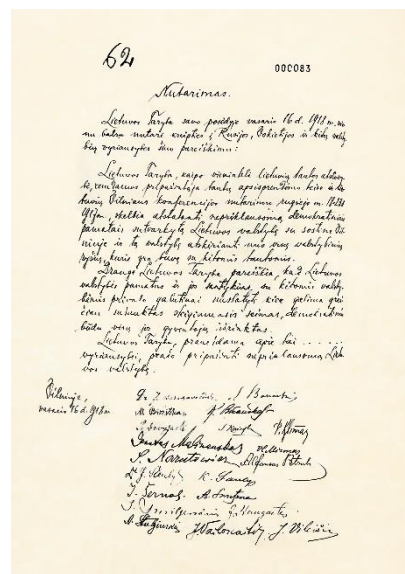 62
000083
Nutarimas.
Lietuvos Taryba savo posėdyje vasario 16 d. 1918 m. vie-
nu balsu nutarė kreiptis į Rusijos, Vokietijos ir kitų valsty-
bių vyriausybes šiuo pareiškimu:
Lietuvos Taryba, kaipo vienintelė lietuvių tautos atstovy-
bė, remdamos pripažintąja tautų apsisprendimo teise ir lie-
tuvių Vilniaus konferencijos nutarimu rugsėjo m. 18-23 d.
1917 m., skelbia atstatanti nepriklausomą, demokratiniais
pamatais sutvarkytą Lietuvos valstybę su sostine Vil-
niuje ir tą valstybę atskirianti nuo visų valstybinių
ryšių, kurie yra buvę su kitomis tautomis.
Drauge Lietuvos Taryba pareiškia, kad Lietuvos
valstybės pamatus ir jos santykius su kitomis valsty-
bėmis privalo galutinai nustatyti kiek galima grei-
čiau sušauktas steigiamasis seimas, demokratiniu
būdu visų jos gyventojų išrinktas.
Lietuvos Taryba, pranešdama apie tai . . . . . .
vyriausybei, prašo pripažinti nepriklausomą Lietu-
vos valstybę.
Vilniuje,
vasario 16 d. 1918 m.
M. Biržiška
Donatas Malinauskas
S. Narutowicz Alfonsas Petrulis
K. Šaulys
J. Šernas A. Smetona
J. Vailokaitis J. Vileišis